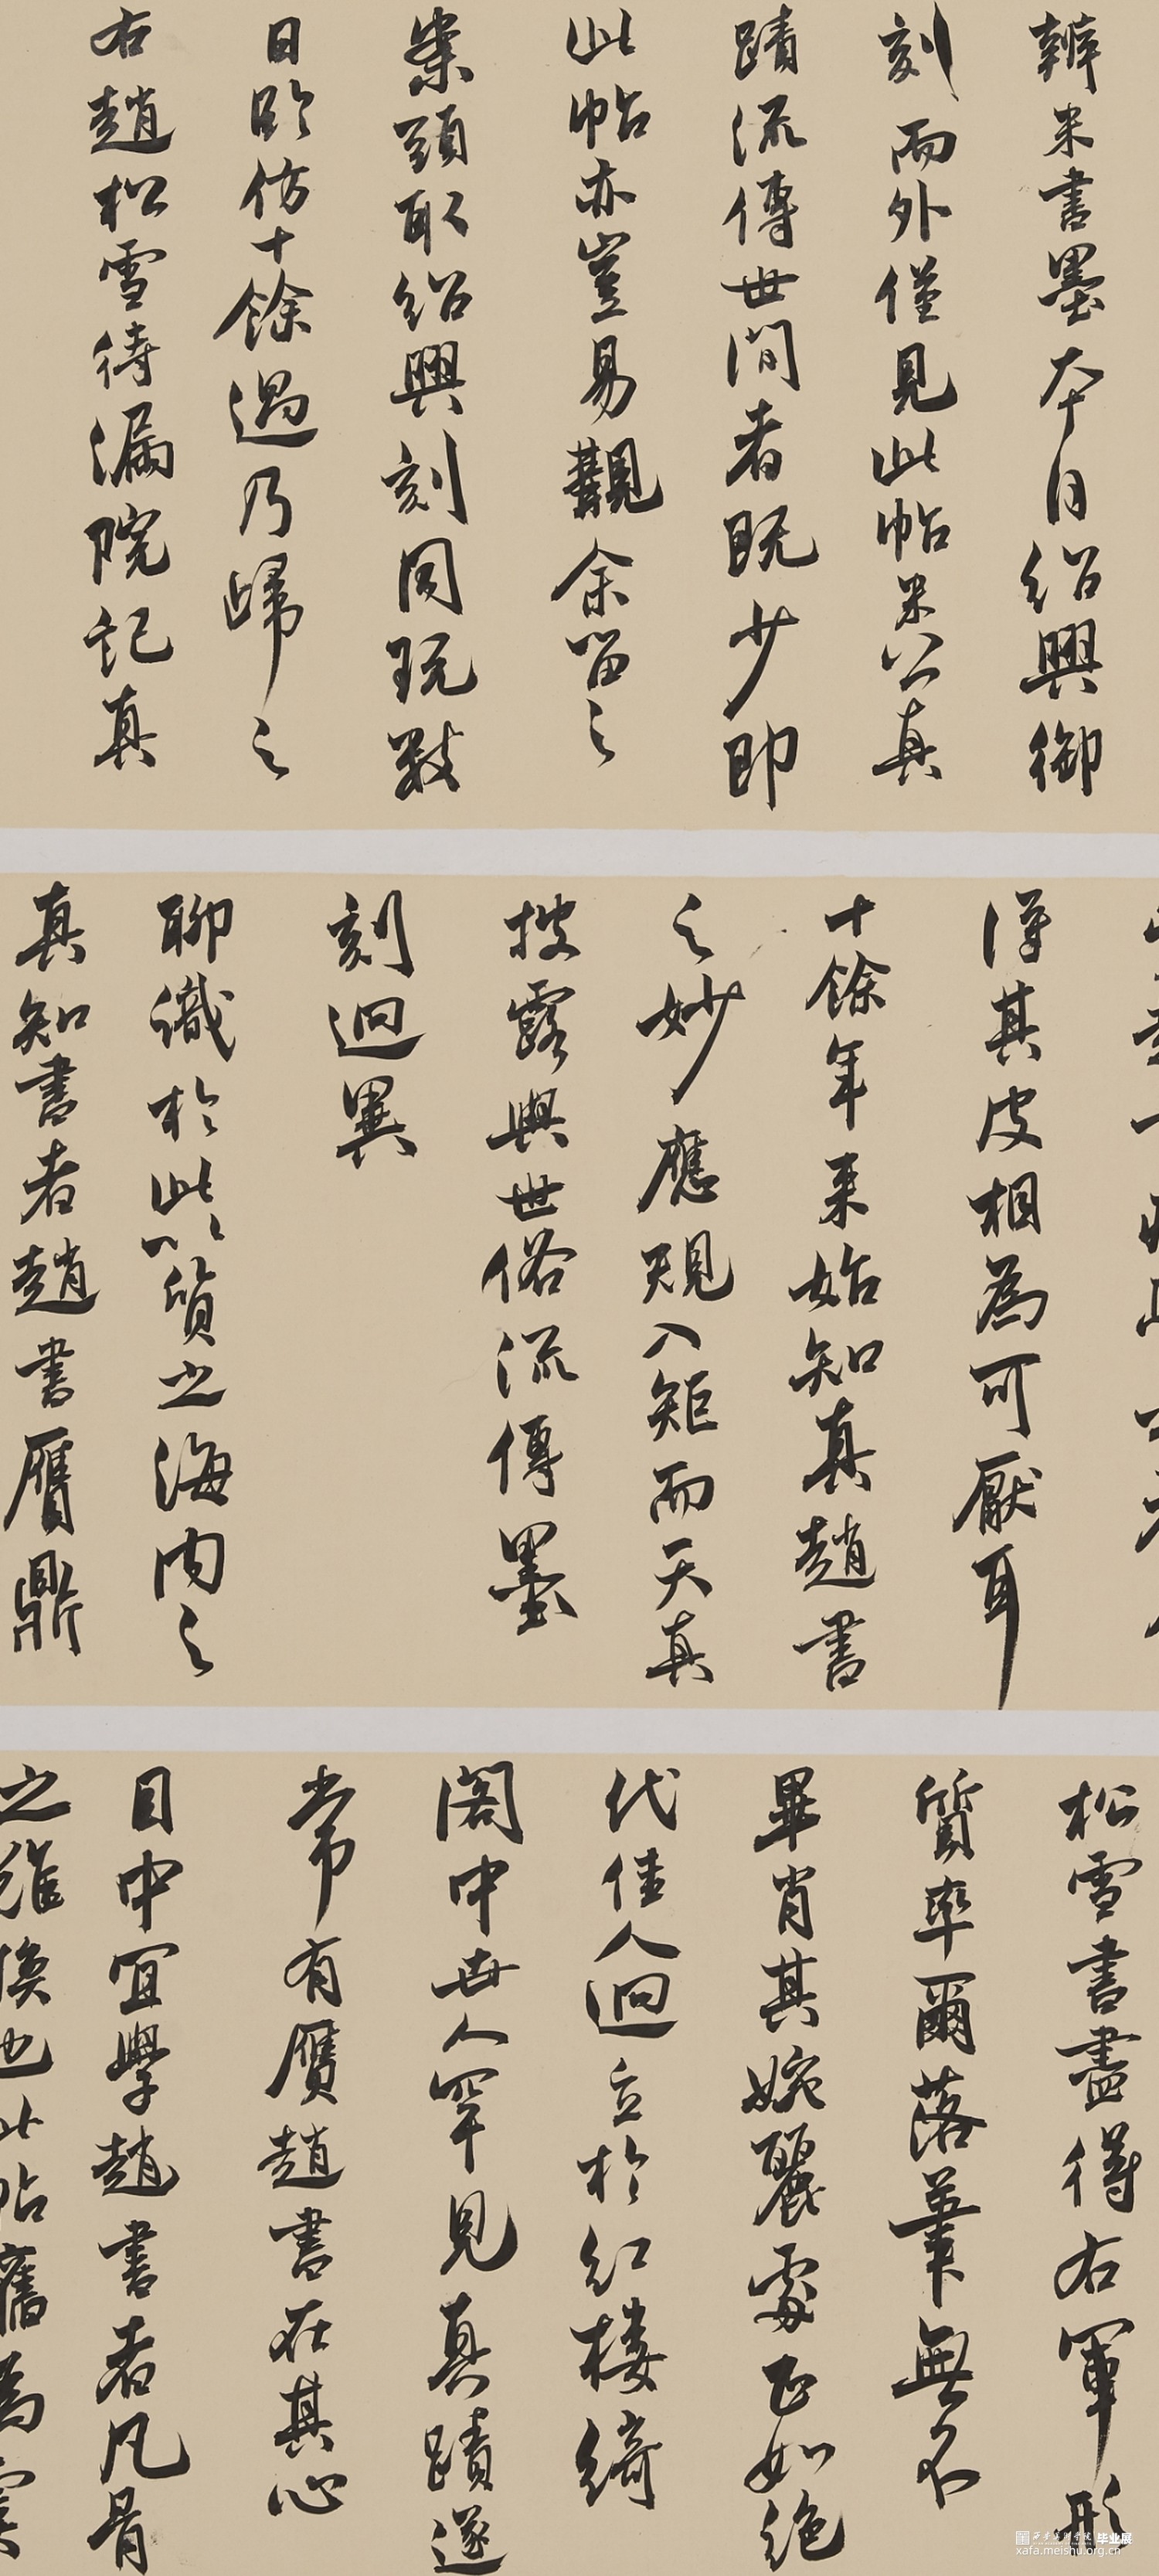 辨米書墨本自紹興御
刻而外僅見此帖米公真
蹟流傳世間者既少即
此帖亦豈易觀余留之
案頭取紹興刻同玩數
日臨仿十餘過乃歸之
右趙松雪待漏院記真
得其皮相為可厭耳
十餘年來始知真趙書
之妙應規入矩而天真
披露與世俗流傳墨
刻迥異
聊識於此以質之海內之
真知書者趙書贗鼎
松雪書盡得右軍形
質率爾落筆無不
畢肖其婉麗處正如絕
代佳人迥立於紅樓綺
閣中世人罕見真蹟遂
常有贗趙書在其心
目中宜學趙書者凡骨
之難換也此帖舊為
毕业展
xafa.meishu.org.cn